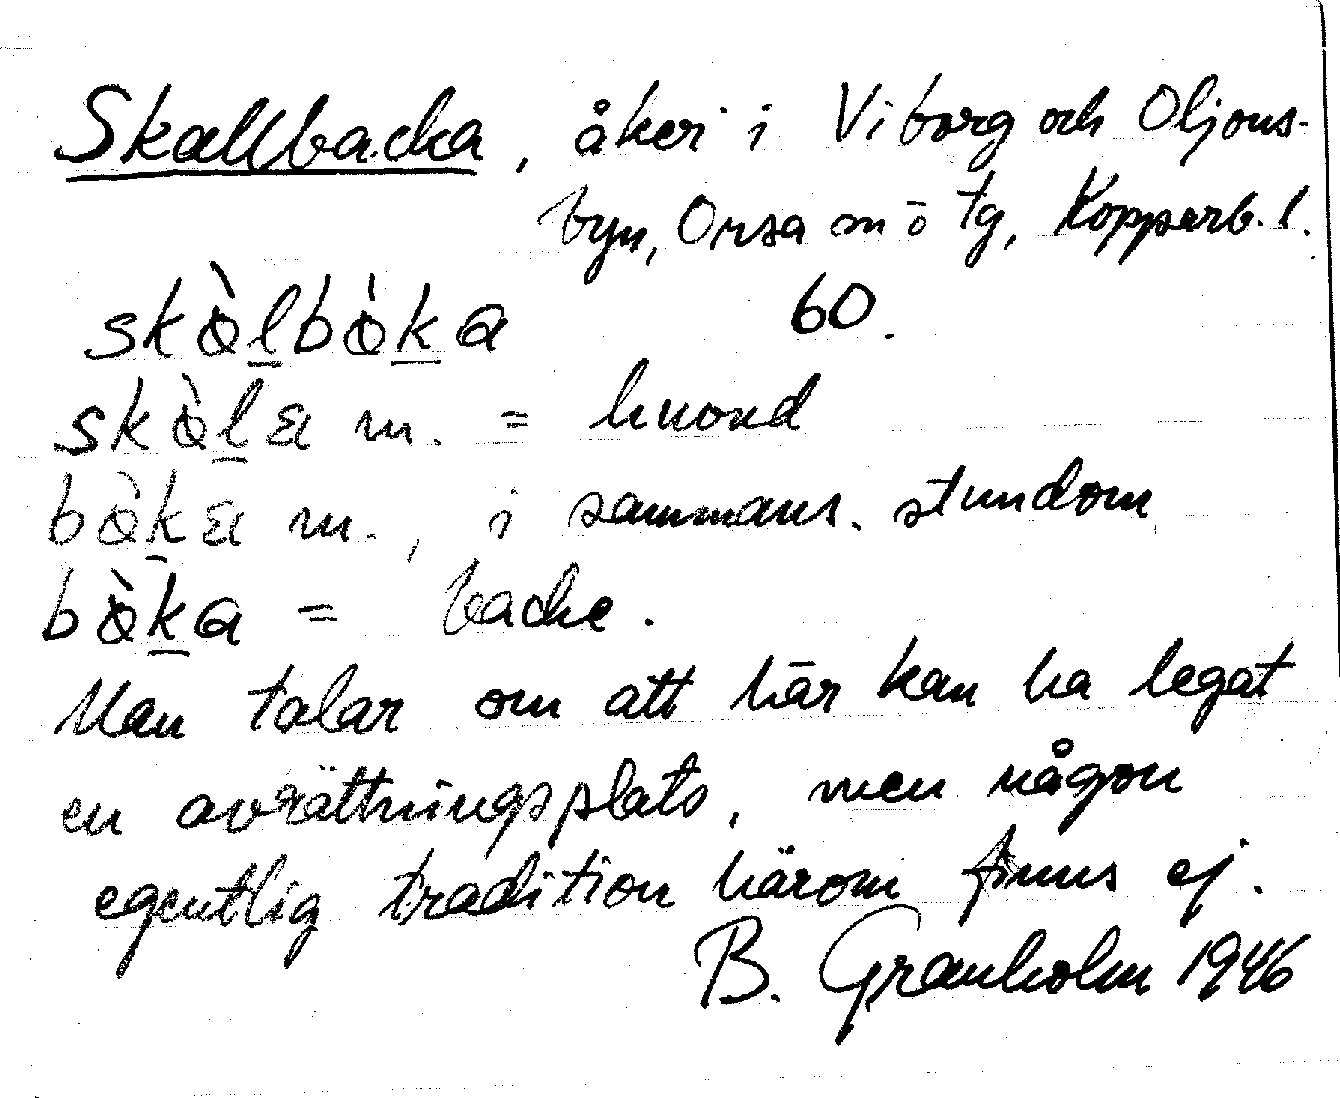 Skallbacka, åker i Viborg och Oljons-
byn, Orsa sn o tg, Kopparb. l.
skàlbàka 60.
skàla m. = huvud
bàka m., i sammans. stundom
bàka = backe.
Man talar om att här kan ha legat
en avrättningsplats, men någon
egentlig tradition härom finns ej.
B. Granholm 1946